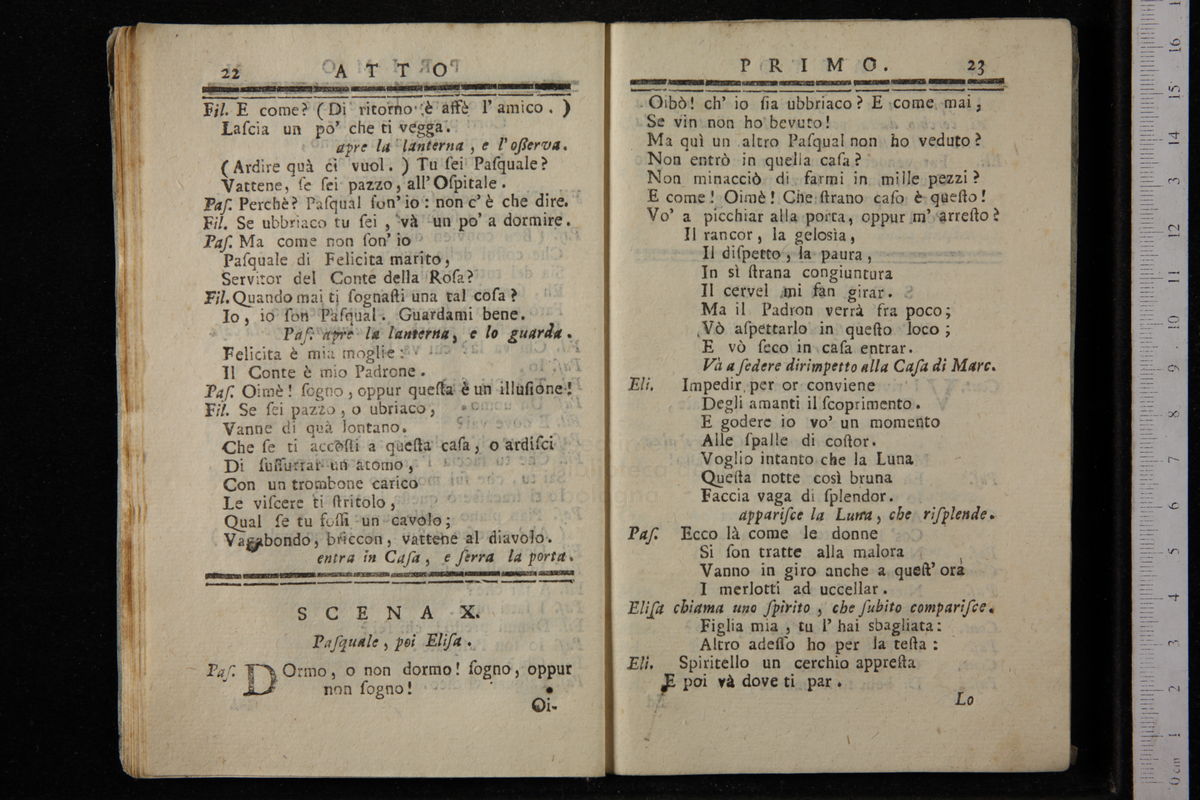 22 ATTO
Fil. E come? (Di ritorno è affè l' amico.)
Laſcia un po' che ti vegga.
apre la lanterna, e l'oſſerva.
(Ardire quà ci vuol.) Tu ſei Paſquale?
Vattene, ſe ſei pazzo, all'Oſpitale.
Paſ. Perchè? Paſqual ſon' io: non c' è che dire.
Fil. Se ubbriaco tu ſei, và un po' a dormire.
Paſ. Ma come non ſon' io
Paſquale di Felicita marito,
Servitor del Conte della Roſa?
Fil. Quando mai ti ſognaſti una tal coſa?
Io, io ſon Paſqual. Guardami bene.
Paſ. apre la lanterna, e lo guarda.
Felicita è mia moglie:
Il Conte è mio Padrone.
Paſ. Oimè! ſogno, oppur queſta è un illuſione!
Fil. Se ſei pazzo, o ubriaco,
Vanne di quà lontano.
Che ſe ti accoſti a queſta caſa, o ardiſci
Di ſuſſurrar un atomo,
Con un trombone carico
Le viſcere ti ſtritolo,
Qual ſe tu foſſi un cavolo;
Vagabondo, briccon, vattene al diavolo.
entra in Caſa, e ſerra la porta.
SCENA X.
Paſquale, poi Eliſa.
Paſ. DOrmo, o non dormo! ſogno, oppur
non ſogno!
Oi-
PRIMO. 23
Oibò! ch' io ſia ubbriaco? E come mai,
Se vin non ho bevuto!
Ma quì un altro Paſqual non ho veduto?
Non entrò in quella caſa?
Non minacciò di farmi in mille pezzi?
E come! Oimè! Che ſtrano caſo è queſto!
Vo' a picchiar alla porta, oppur m' arreſto?
Il rancor, la gelosìa,
Il diſpetto, la paura,
In sì ſtrana congiuntura
Il cervel mi fan girar.
Ma il Padron verrà fra poco;
Vò aſpettarlo in queſto loco;
E vò ſeco in caſa entrar.
Và a ſedere dirimpetto alla Caſa di Marc.
Eli. Impedir per or conviene
Degli amanti il ſcoprimento.
E godere io vo' un momento
Alle ſpalle di coſtor.
Voglio intanto che la Luna
Queſta notte così bruna
Faccia vaga di ſplendor.
appariſce la Luna, che riſplende.
Paſ. Ecco là come le donne
Si ſon tratte alla malora
Vanno in giro anche a queſt' ora
I merlotti ad uccellar.
Eliſa chiama uno ſpirito, che ſubito compariſce.
Figlia mia, tu l' hai sbagliata:
Altro adeſſo ho per la teſta:
Eli. Spiritello un cerchio appreſta
E poi và dove ti par.
Lo